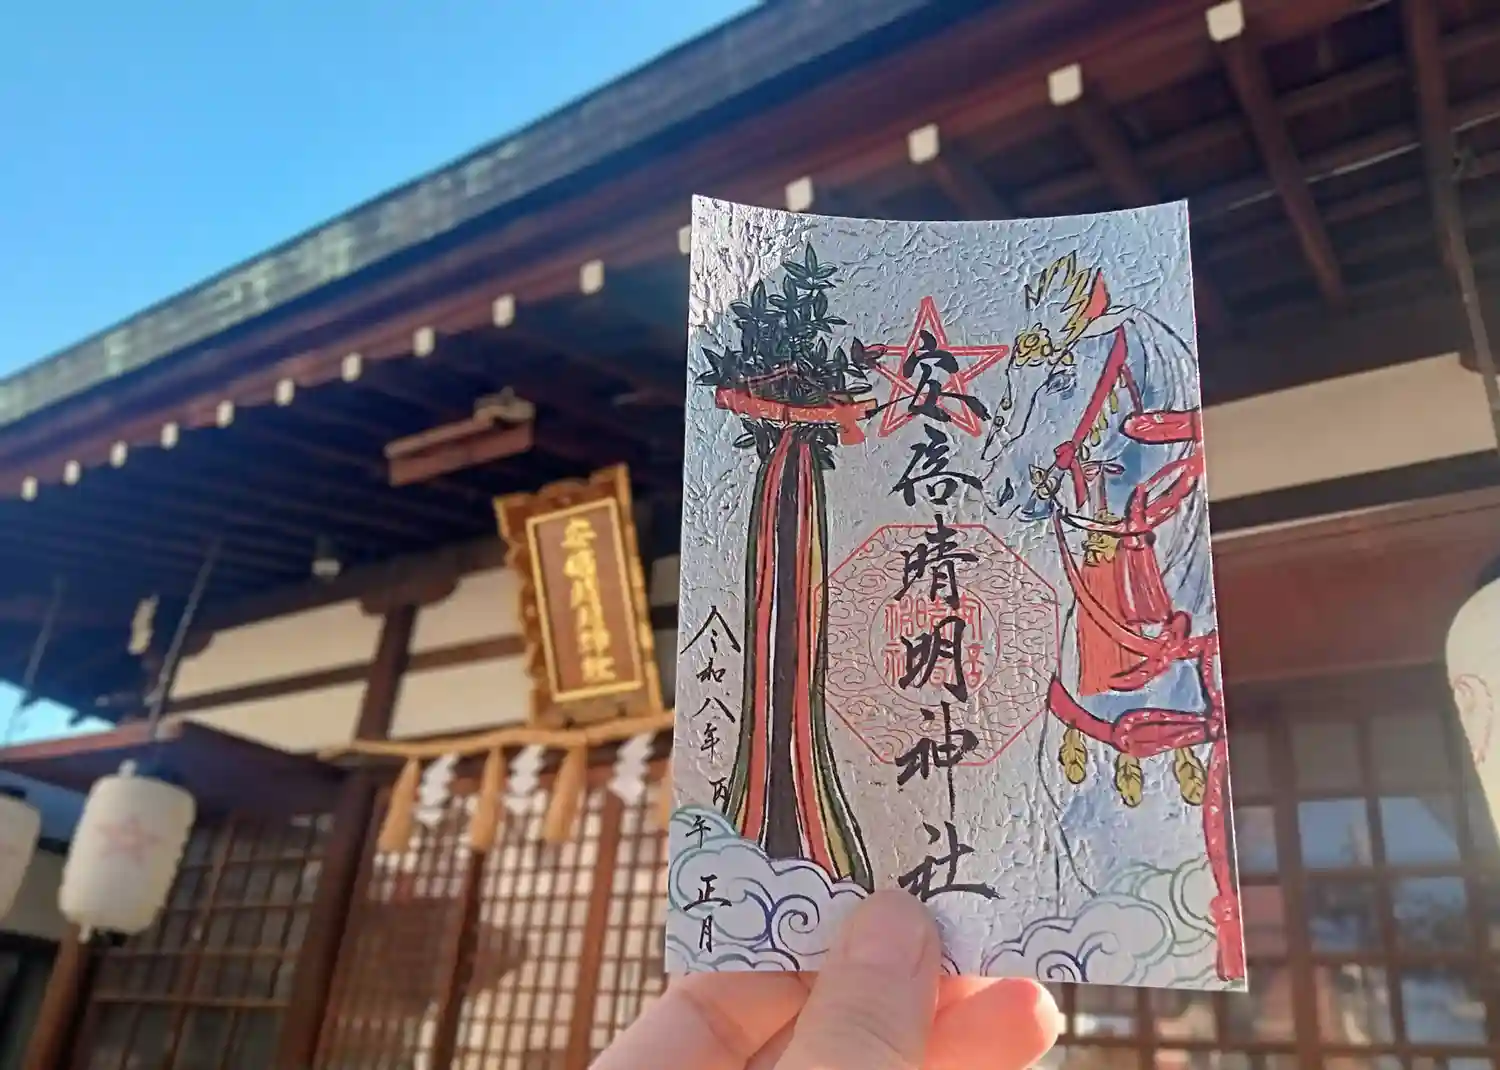 安倍晴明神社
令和八年 丙午 正月
安倍晴明神社